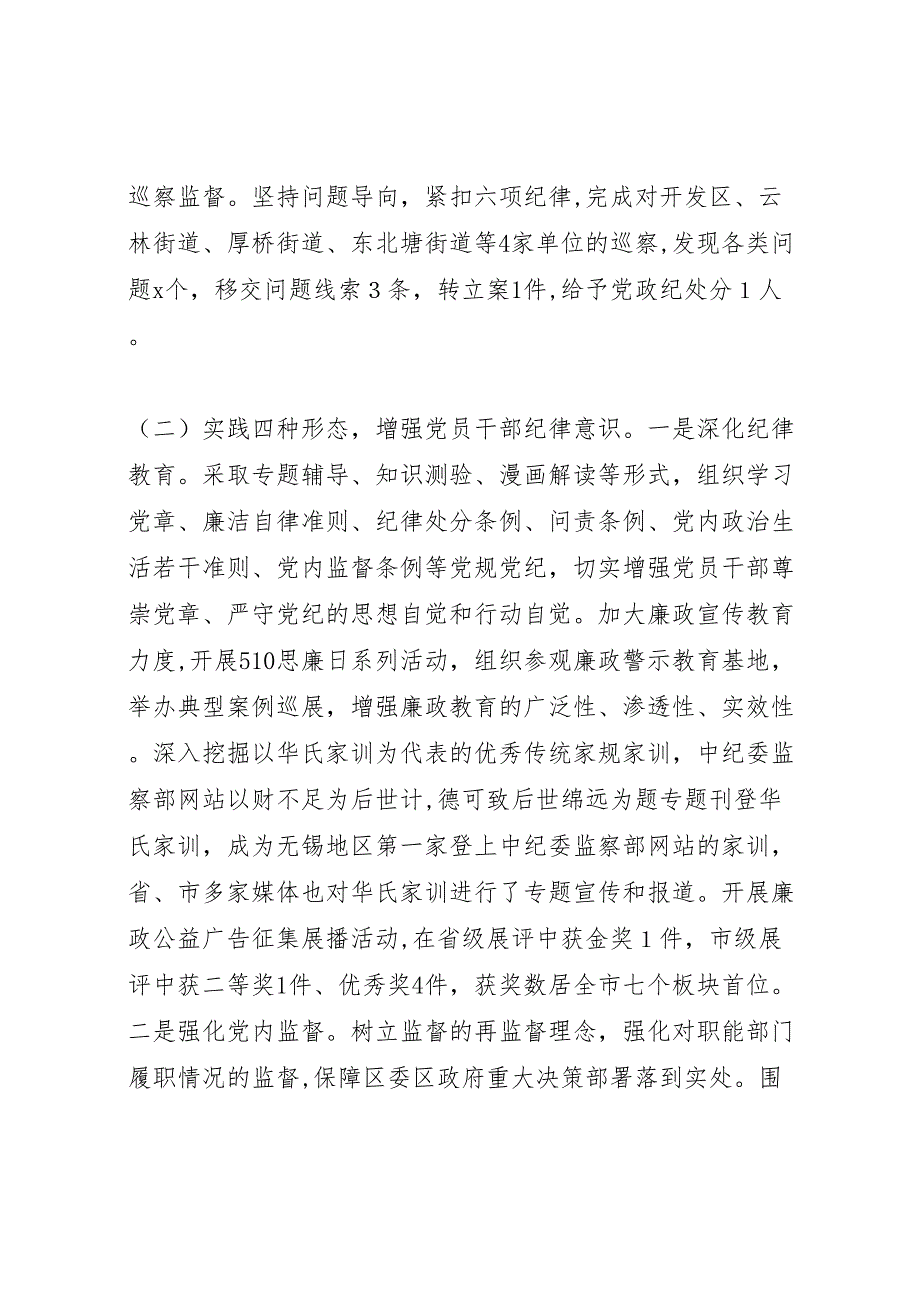 巡察监督。坚持问题导向，紧扣六项纪律,完成对开发区、云
林街道、厚桥街道、东北塘街道等4家单位的巡察,发现各类问
题x个，移交问题线索３条，转立案1件,给予党政纪处分１人
。
（二）实践四种形态，增强党员干部纪律意识。一是深化纪律
教育。采取专题辅导、知识测验、漫画解读等形式，组织学习
党章、廉洁自律准则、纪律处分条例、问责条例、党内政治生
活若干准则、党内监督条例等党规党纪，切实增强党员干部尊
崇党章、严守党纪的思想自觉和行动自觉。加大廉政宣传教育
力度,开展510思廉日系列活动，组织参观廉政警示教育基地，
举办典型案例巡展，增强廉政教育的广泛性、渗透性、实效性
。深入挖掘以华氏家训为代表的优秀传统家规家训，中纪委监
察部网站以财不足为后世计,德可致后世绵远为题专题刊登华
氏家训，成为无锡地区第一家登上中纪委监察部网站的家训，
省、市多家媒体也对华氏家训进行了专题宣传和报道。开展廉
政公益广告征集展播活动,在省级展评中获金奖１件，市级展
评中获二等奖1件、优秀奖4件，获奖数居全市七个板块首位。
二是强化党内监督。树立监督的再监督理念，强化对职能部门
履职情况的监督,保障区委区政府重大决策部署落到实处。围